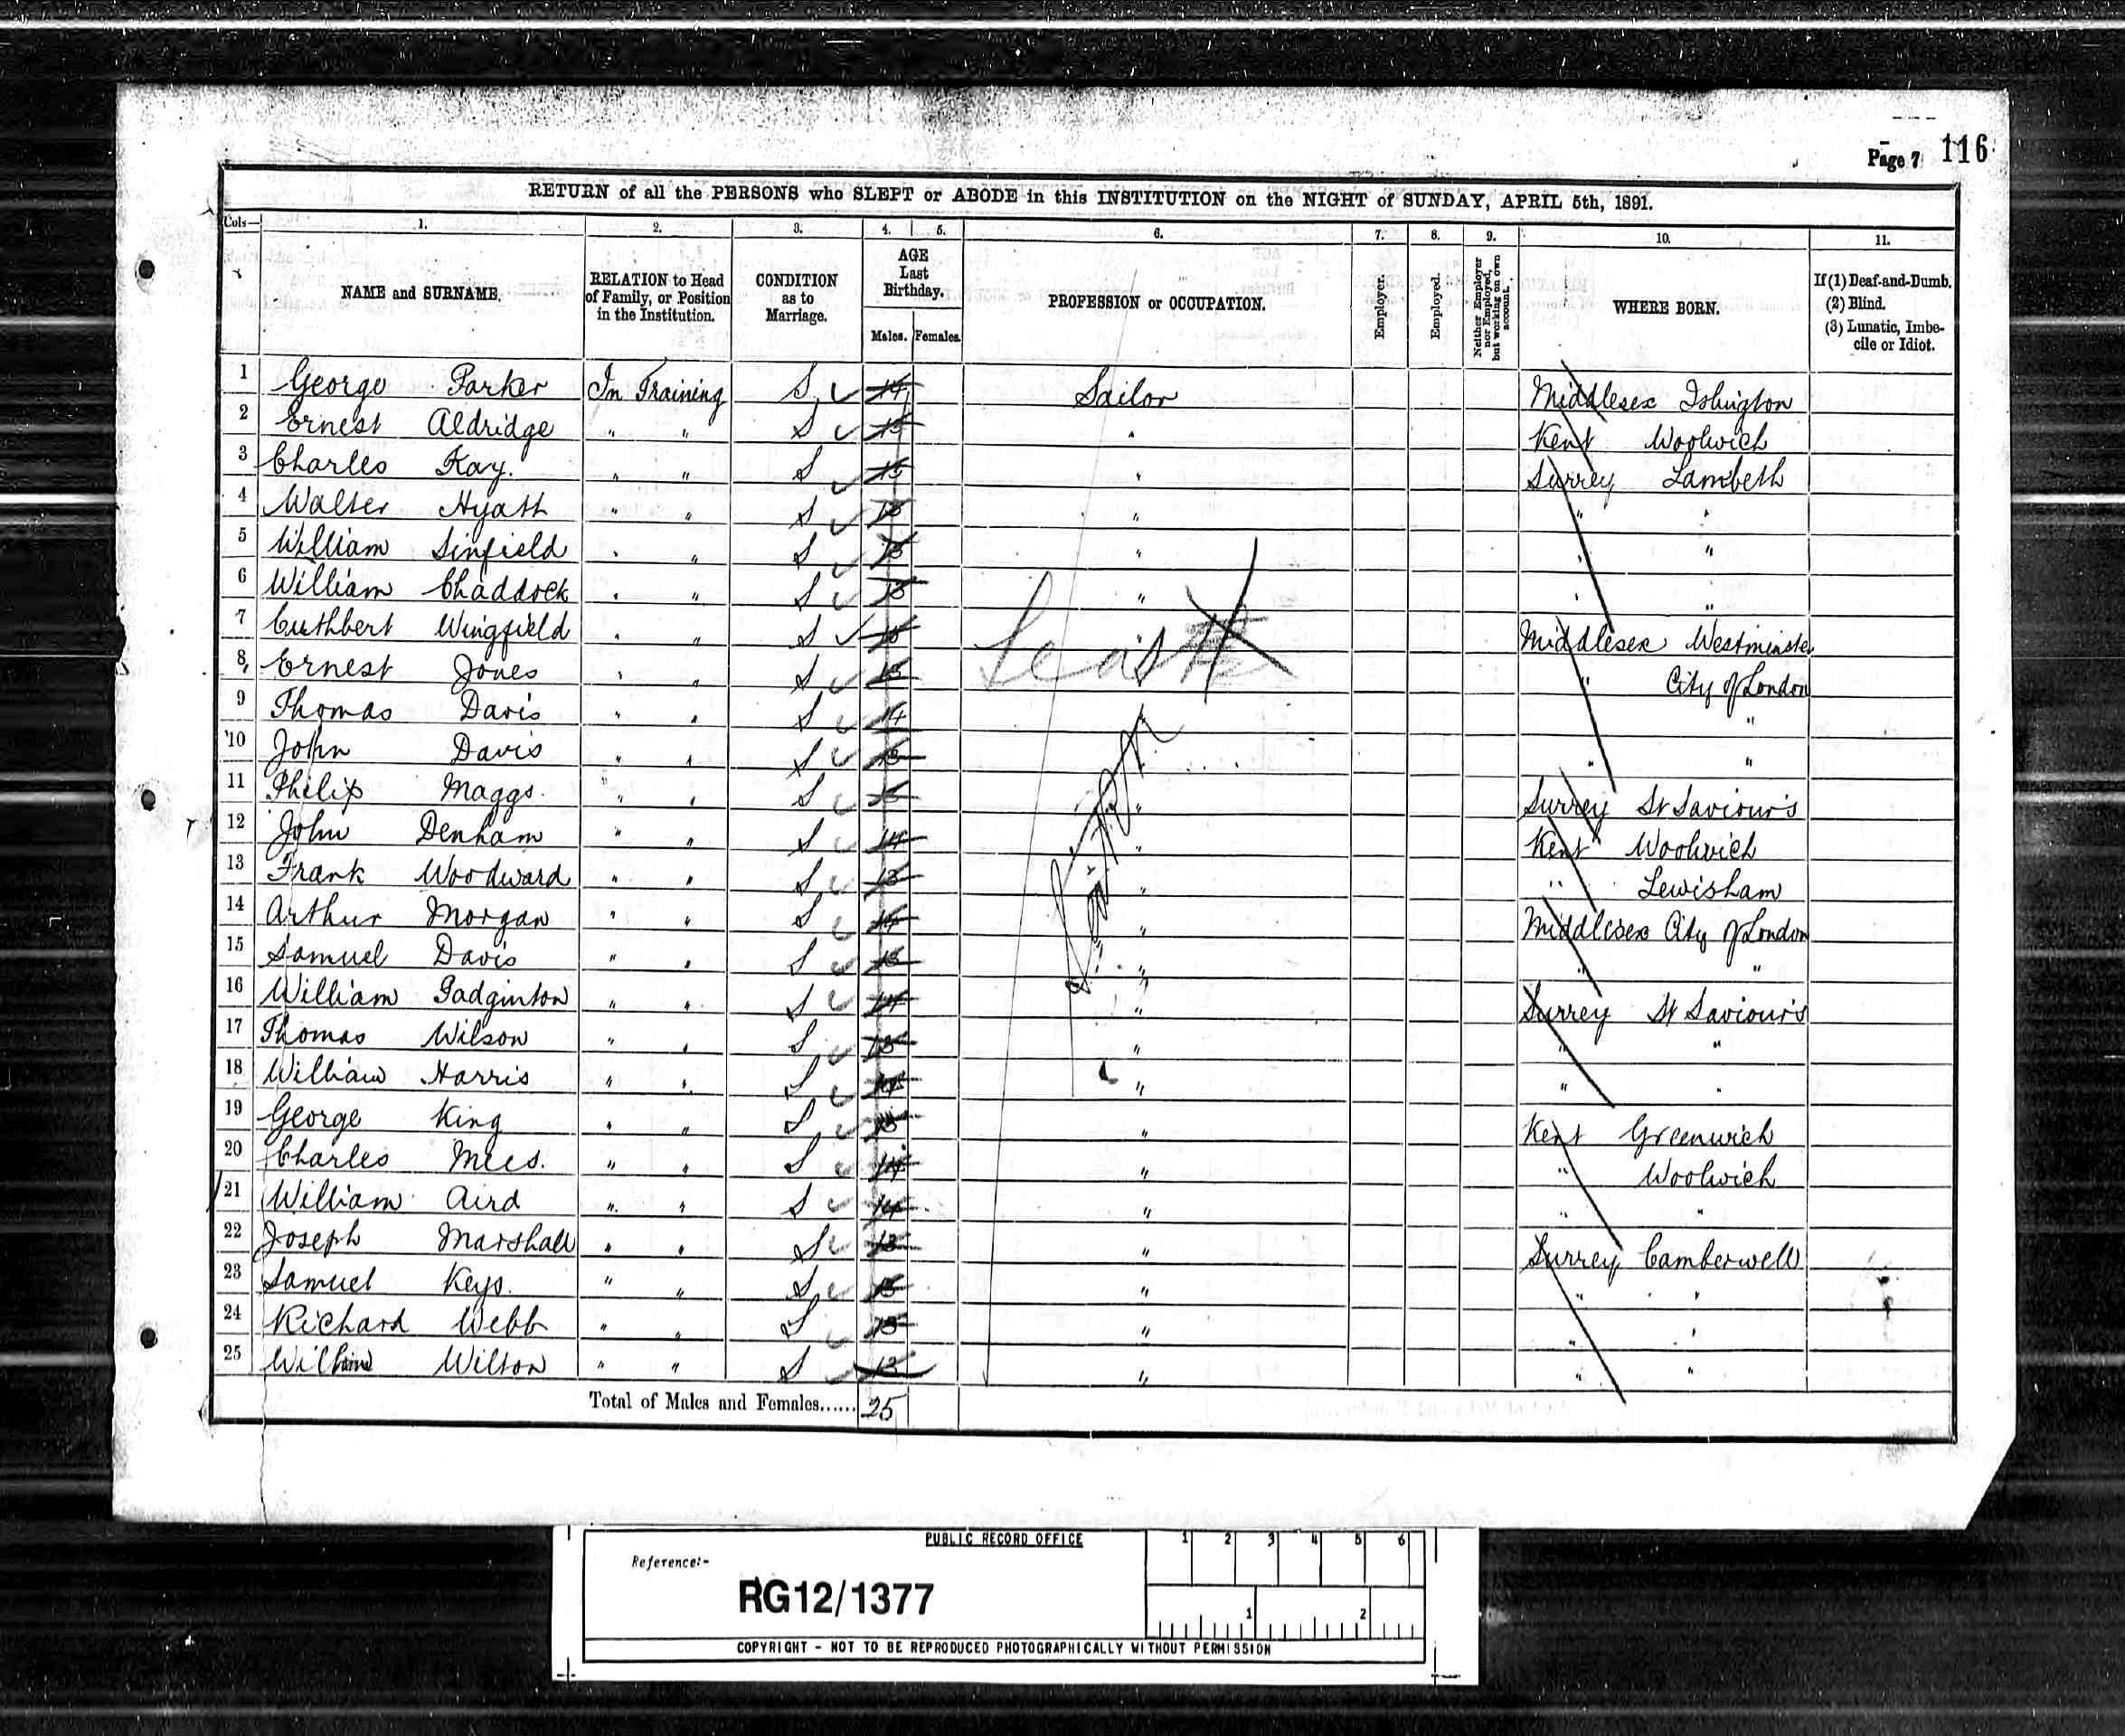 Page 7 116
RETURN of all the PERSONS who SLEPT or ABODE in this INSTITUTION on the NIGHT of SUNDAY, APRIL 5th, 1891.
Cols— 1. 2. 3. 4. 5. 6. 7. 8. 9. 10. 11.
NAME and SURNAME. RELATION to Head of Family, or Position in the Institution. CONDITION as to Marriage. AGE Last Birthday. Males. Females. PROFESSION or OCCUPATION. Employer. Employed. Neither Employer nor Employed, but working on own account. WHERE BORN. If (1) Deaf-and-Dumb. (2) Blind. (3) Lunatic, Imbecile or Idiot.
1 George Parker In Training S 14 Sailor Middlesex Islington
2 Ernest Aldridge " " S " Kent Woolwich
3 Charles Kay. " " S " Surrey Lambeth
4 Walter Hyatt " " S " " "
5 William Sinfield " " S " " "
6 William Chaddock " " S " " "
7 Cuthbert Wingfield " " S " Middlesex Westminster
8 Ernest Jones " " S " " City of London
9 Thomas Davis " " S 14 " "
10 John Davis " " S " "
11 Philip Maggs. " " S " Surrey St Saviour's
12 John Denham " " S 14 " Kent Woolwich
13 Frank Woodward " " S 13 " " Lewisham
14 Arthur Morgan " " S 14 " Middlesex City of London
15 Samuel Davis " " S " " "
16 William Padginton " " S 14 " Surrey St Saviour's
17 Thomas Wilson " " S " " "
18 William Harris " " S " " "
19 George King " " S " Kent Greenwich
20 Charles Mees. " " S 14 " " Woolwich
21 William Aird " " S 14 " " "
22 Joseph Marshall " " S 13 " Surrey Camberwell
23 Samuel Keys. " " S " " "
24 Richard Webb " " S " " "
25 William Wilton " " S 13 " " "
Total of Males and Females...... 25
PUBLIC RECORD OFFICE 1 2 3 4 5 6
Reference:-
RG12/1377
1 2
COPYRIGHT - NOT TO BE REPRODUCED PHOTOGRAPHICALLY WITHOUT PERMISSION